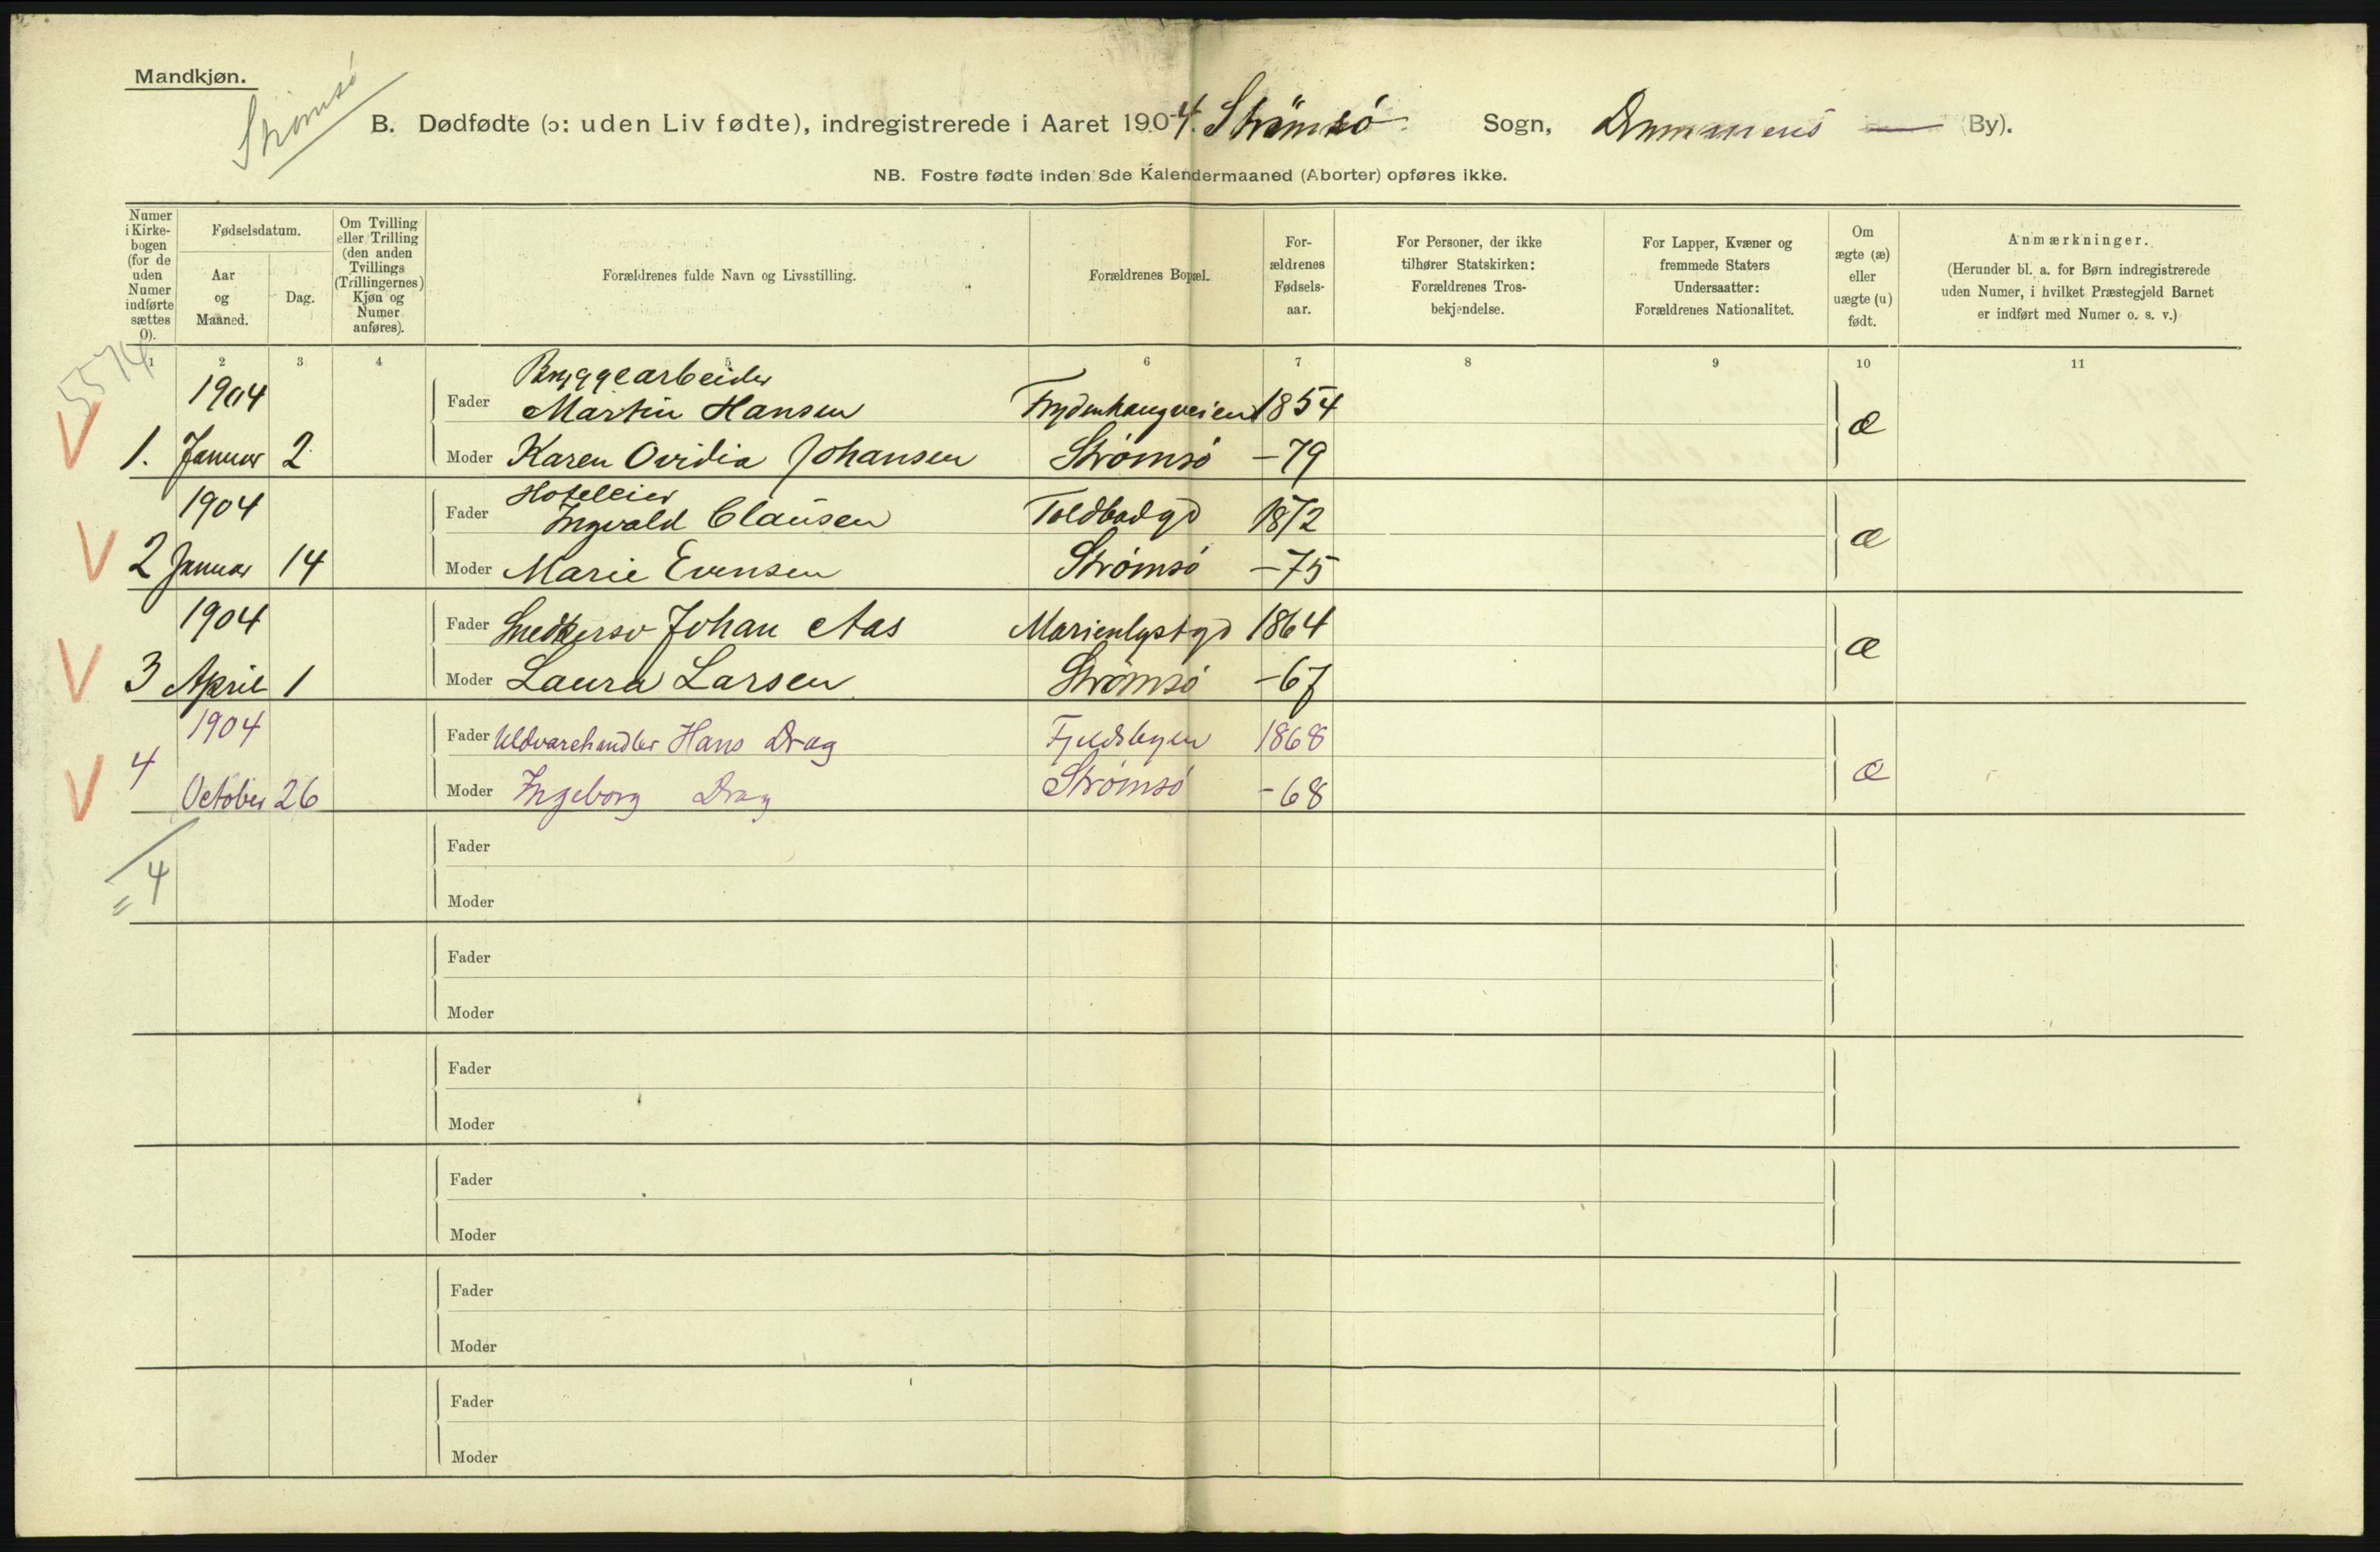 Mandkjøn.
Strømsö
B. Dødfødte (ɔ: uden Liv fødte), indregistrerede i Aaret 1904. Strömsö Sogn, Drammens — By).
NB. Fostre fødte inden 8de Kalendermaaned (Aborter) opføres ikke.
Numer i Kirkebogen (for de uden Numer indførte sættes 0).
Fødselsdatum.
Aar og Maaned.
Dag.
Om Tvilling eller Trilling (den anden Tvillings (Trillingernes) Kjøn og Numer anføres).
Forældrenes fulde Navn og Livsstilling.
Forældrenes Bopæl.
Forældrenes Fødselsaar.
For Personer, der ikke tilhører Statskirken: Forældrenes Trosbekjendelse.
For Lapper, Kvæner og fremmede Staters Undersaatter: Forældrenes Nationalitet.
Om ægte (æ) eller uægte (u) født.
Anmærkninger.
(Herunder bl. a. for Børn indregistrerede uden Numer, i hvilket Præstegjeld Barnet er indført med Numer o. s. v.)
1 2 3 4 5 6 7 8 9 10 11
5574
Bryggearbeider
1904 Fader Martin Hansen Frydenhaugveien 1854 æ
V 1. Januar 2 Moder Karen Ovidia Johansen Strømsö -79
Hoteleier
1904 Fader Ingvald Clausen Toldbodgd 1872 æ
V 2 Januar 14 Moder Marie Evensen Strømsö -75
1904 Fader Snedkersv Johan Aas Marienlystgd 1864 æ
V 3 April 1 Moder Laura Larsen Strømsö -67
1904 Fader Uldvarehandler Hans Drag Fjeldsbyen 1868 æ
V 4 October 26 Moder Ingeborg Drag Strømsö -68
= 4
Fader
Moder
Fader
Moder
Fader
Moder
Fader
Moder
Fader
Moder
Fader
Moder